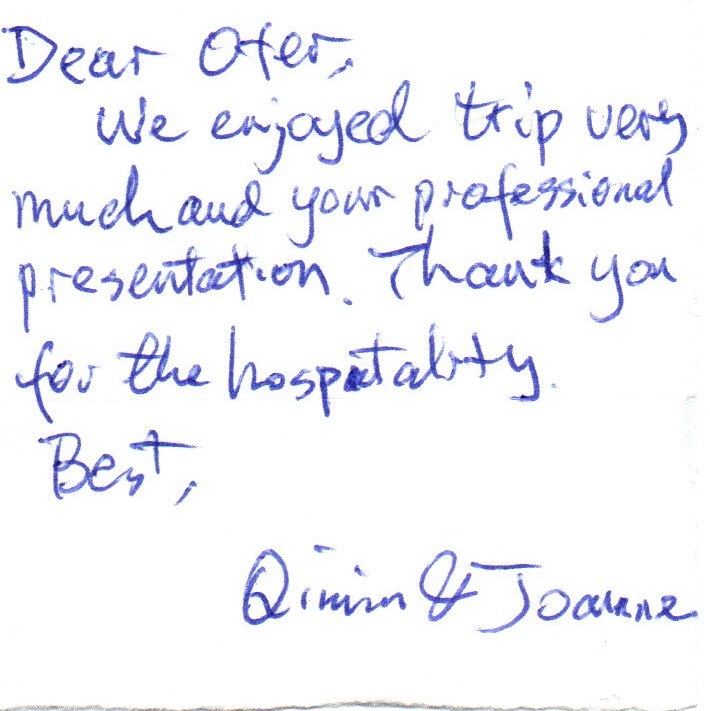 Dear Ofer,
We enjoyed trip very
much and your professional
presentation. Thank you
for the hospitality.
Best,
& Joanne